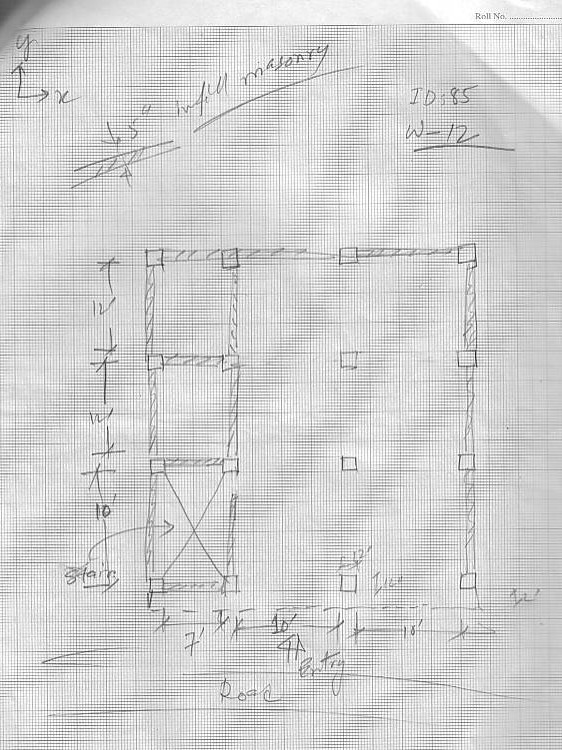 Roll No.
y
x
5" infill masonry
ID:85
W-12
12'
12'
10'
Stair
12"
12"
7'
10'
10'
Entry
Road